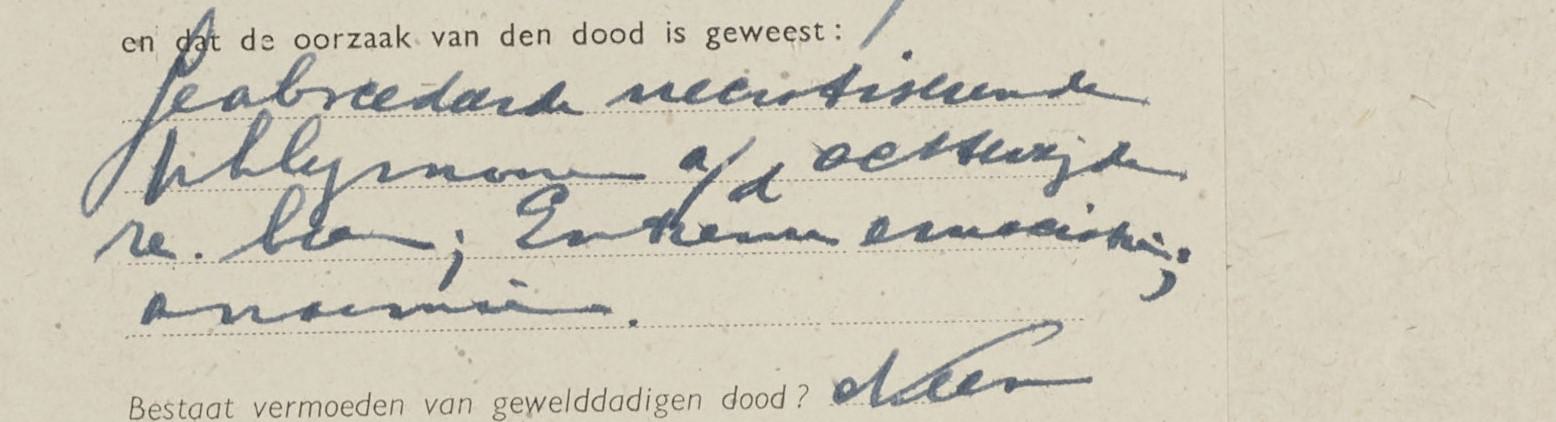 en dat de oorzaak van den dood is geweest:
Geabcedeerde necrotiserende
phlegmone a/d achterzijde
re. been; Extreme emaciatie;
anaemie.
Bestaat vermoeden van gewelddadigen dood? Neen